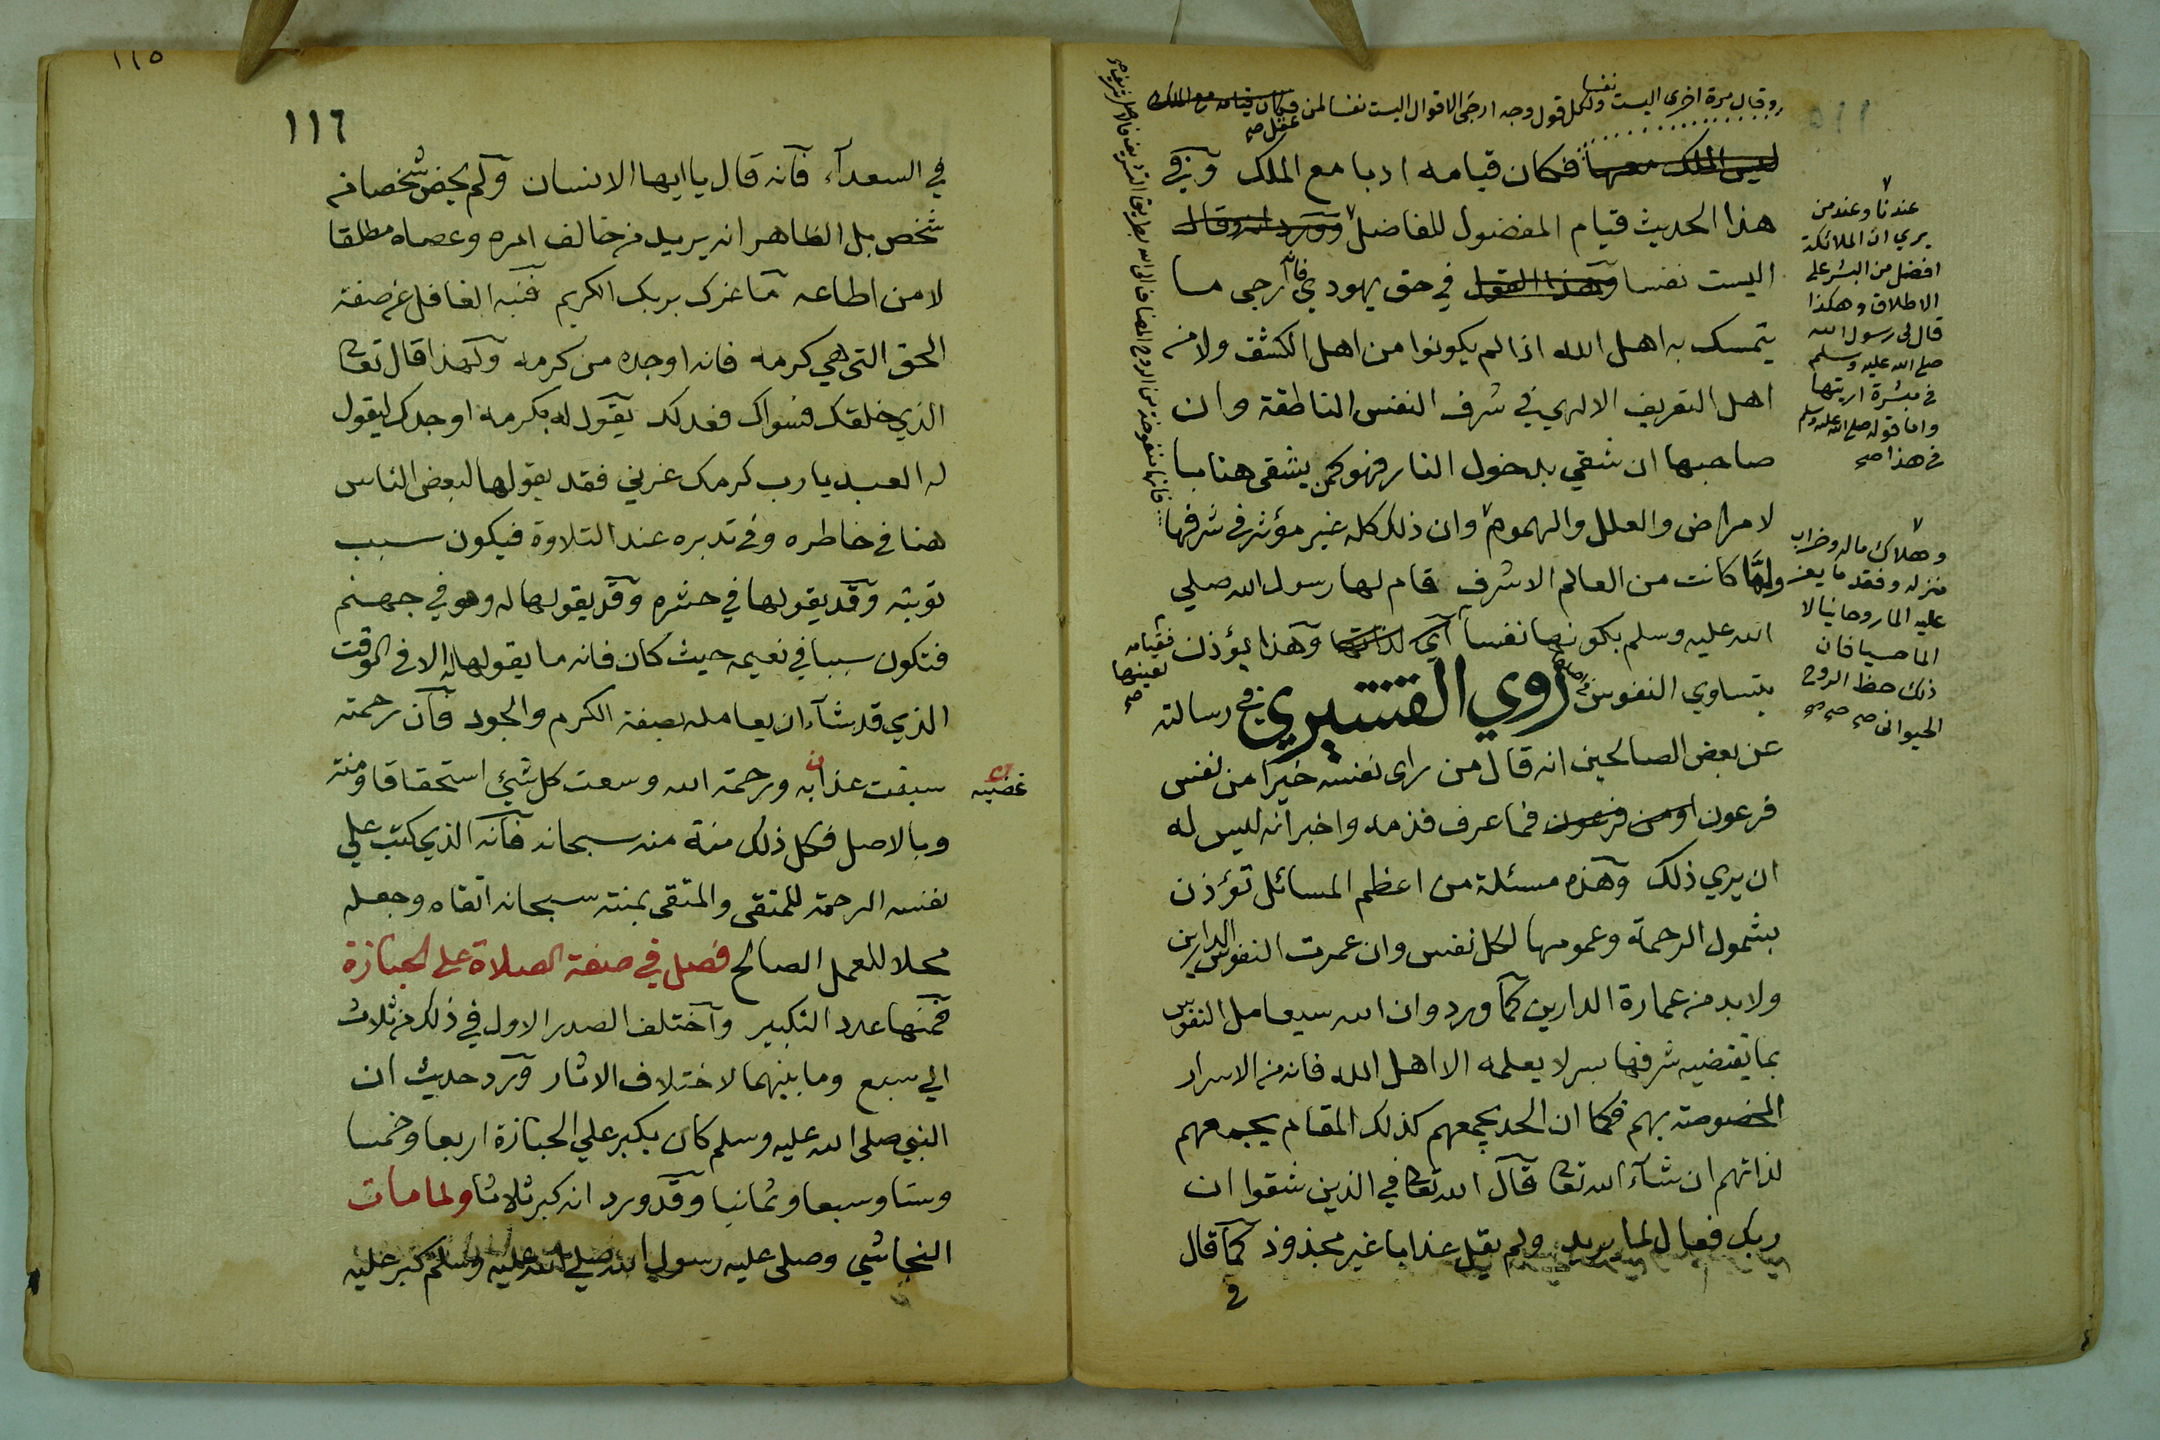 وقال مرة اخرى اليست نفسا ولكل قول وجه ارجى الاقوال اليست نفسا لمن عقل صح فكان قيامه مع الملك
ليس الملك معها فكان قيامه ادبا مع الملك وفي
هذا الحديث قيام المفضول للفاضل وورد انه قال
اليست نفسا وهذا القول في حق يهودي فانه ارجى ما
يتمسك به اهل الله اذا لم يكونوا من اهل الكشف ولا من
اهل التعريف الالهي في شرف النفس الناطقة وان
صاحبها ان شقي بدخول النار فهو كمن يشقى هنا با
لامراض والعلل والهموم وان ذلك كله غير مؤثر في شرفها
ولما كانت من العالم الاشرف قام لها رسول الله صلى
الله عليه وسلم بكونها نفسا اي لذاتها وهذا يؤذن
بتساوي النفوس روي القشيري في رسالته
عن بعض الصالحين انه قال من راى نفسه خيرا من نفس
فرعون او من فرعون فما عرف فذمه واخبر انه ليس له
ان يري ذلك وهذه مسئلة من اعظم المسائل تؤذن
بشمول الرحمة وعمومها لكل نفس وان عمرت النفوس الدارين
ولا بد من عمارة الدارين كما ورد وان الله سيعامل النفوس
بما يقتضيه شرفها بسر لا يعلمه الا اهل الله فانه من الاسرار
المخصوصة بهم فكما ان الحد يجمعهم كذلك المقام يجمعهم
لذاتهم ان شاء الله تعا قال الله تعا في الذين شقوا ان
ربك فعال لما يريد ولم يقل عذابا غير مجذوذ كما قال
في
عندنا وعند من
يري ان الملائكة
افضل من البشر على
الاطلاق وهكذا
قال لي رسول الله
صلى الله عليه وسلم
في مبشرة اريتها
واما قوله صلى الله عليه وسلم
في هذا صح
وهلاك ماله وخراب
منزله وفقد ما يعز
عليه الما روحانيا لا
الما حسيا فان
ذلك حظ الروح
الحيواني صح صح صح
فقيامه
لعينها
صح
١١٥
١١٦
في السعداء فانه قال يا ايها الانسان ولم يخص شخصا من
شخص بل الظاهر انه يريد من خالف امره وعصاه مطلقا
لا من اطاعه ما غرك بربك الكريم فنبه الغافل عن صفة
الحق التي هي كرمه فانه اوجده من كرمه ولهذا قال تعا
الذي خلقك فسواك فعدلك يقول له بكرمه اوجدك ليقول
له العبد يا رب كرمك غرني فقد يقولها لبعض الناس
هنا في خاطره وفي تدبره عند التلاوة فيكون سبب
توبته وقد يقولها في حشره وقد يقولها له وهو في جهنم
فتكون سببا في نعيمه حيث كان فانه ما يقولها له الا في الوقت
الذي قد شاء ان يعامله بصفة الكرم والجود فان رحمته
سبقت عذابه ورحمة الله وسعت كل شئ استحقاقا ومنة
غضبه
وبالاصل فكل ذلك منة منه سبحانه فانه الذي كتب على
نفسه الرحمة للمتقى والمتقى بمنته سبحانه اتقاه وجعله
محلا للعمل الصالح فصل في صفة الصلاة على الجنازة
فمنها عدد التكبير واختلف الصدر الاول في ذلك من ثلاث
الي سبع وما بينهما لاختلاف الاثار ورد حديث ان
النبي صلى الله عليه وسلم كان يكبر علي الجنازة اربعا وخمسا
وستا وسبعا وثمانيا وقد ورد انه كبر ثلاثا ولما مات
النجاشي وصلى عليه رسول الله صلي الله عليه وسلم كبر عليه